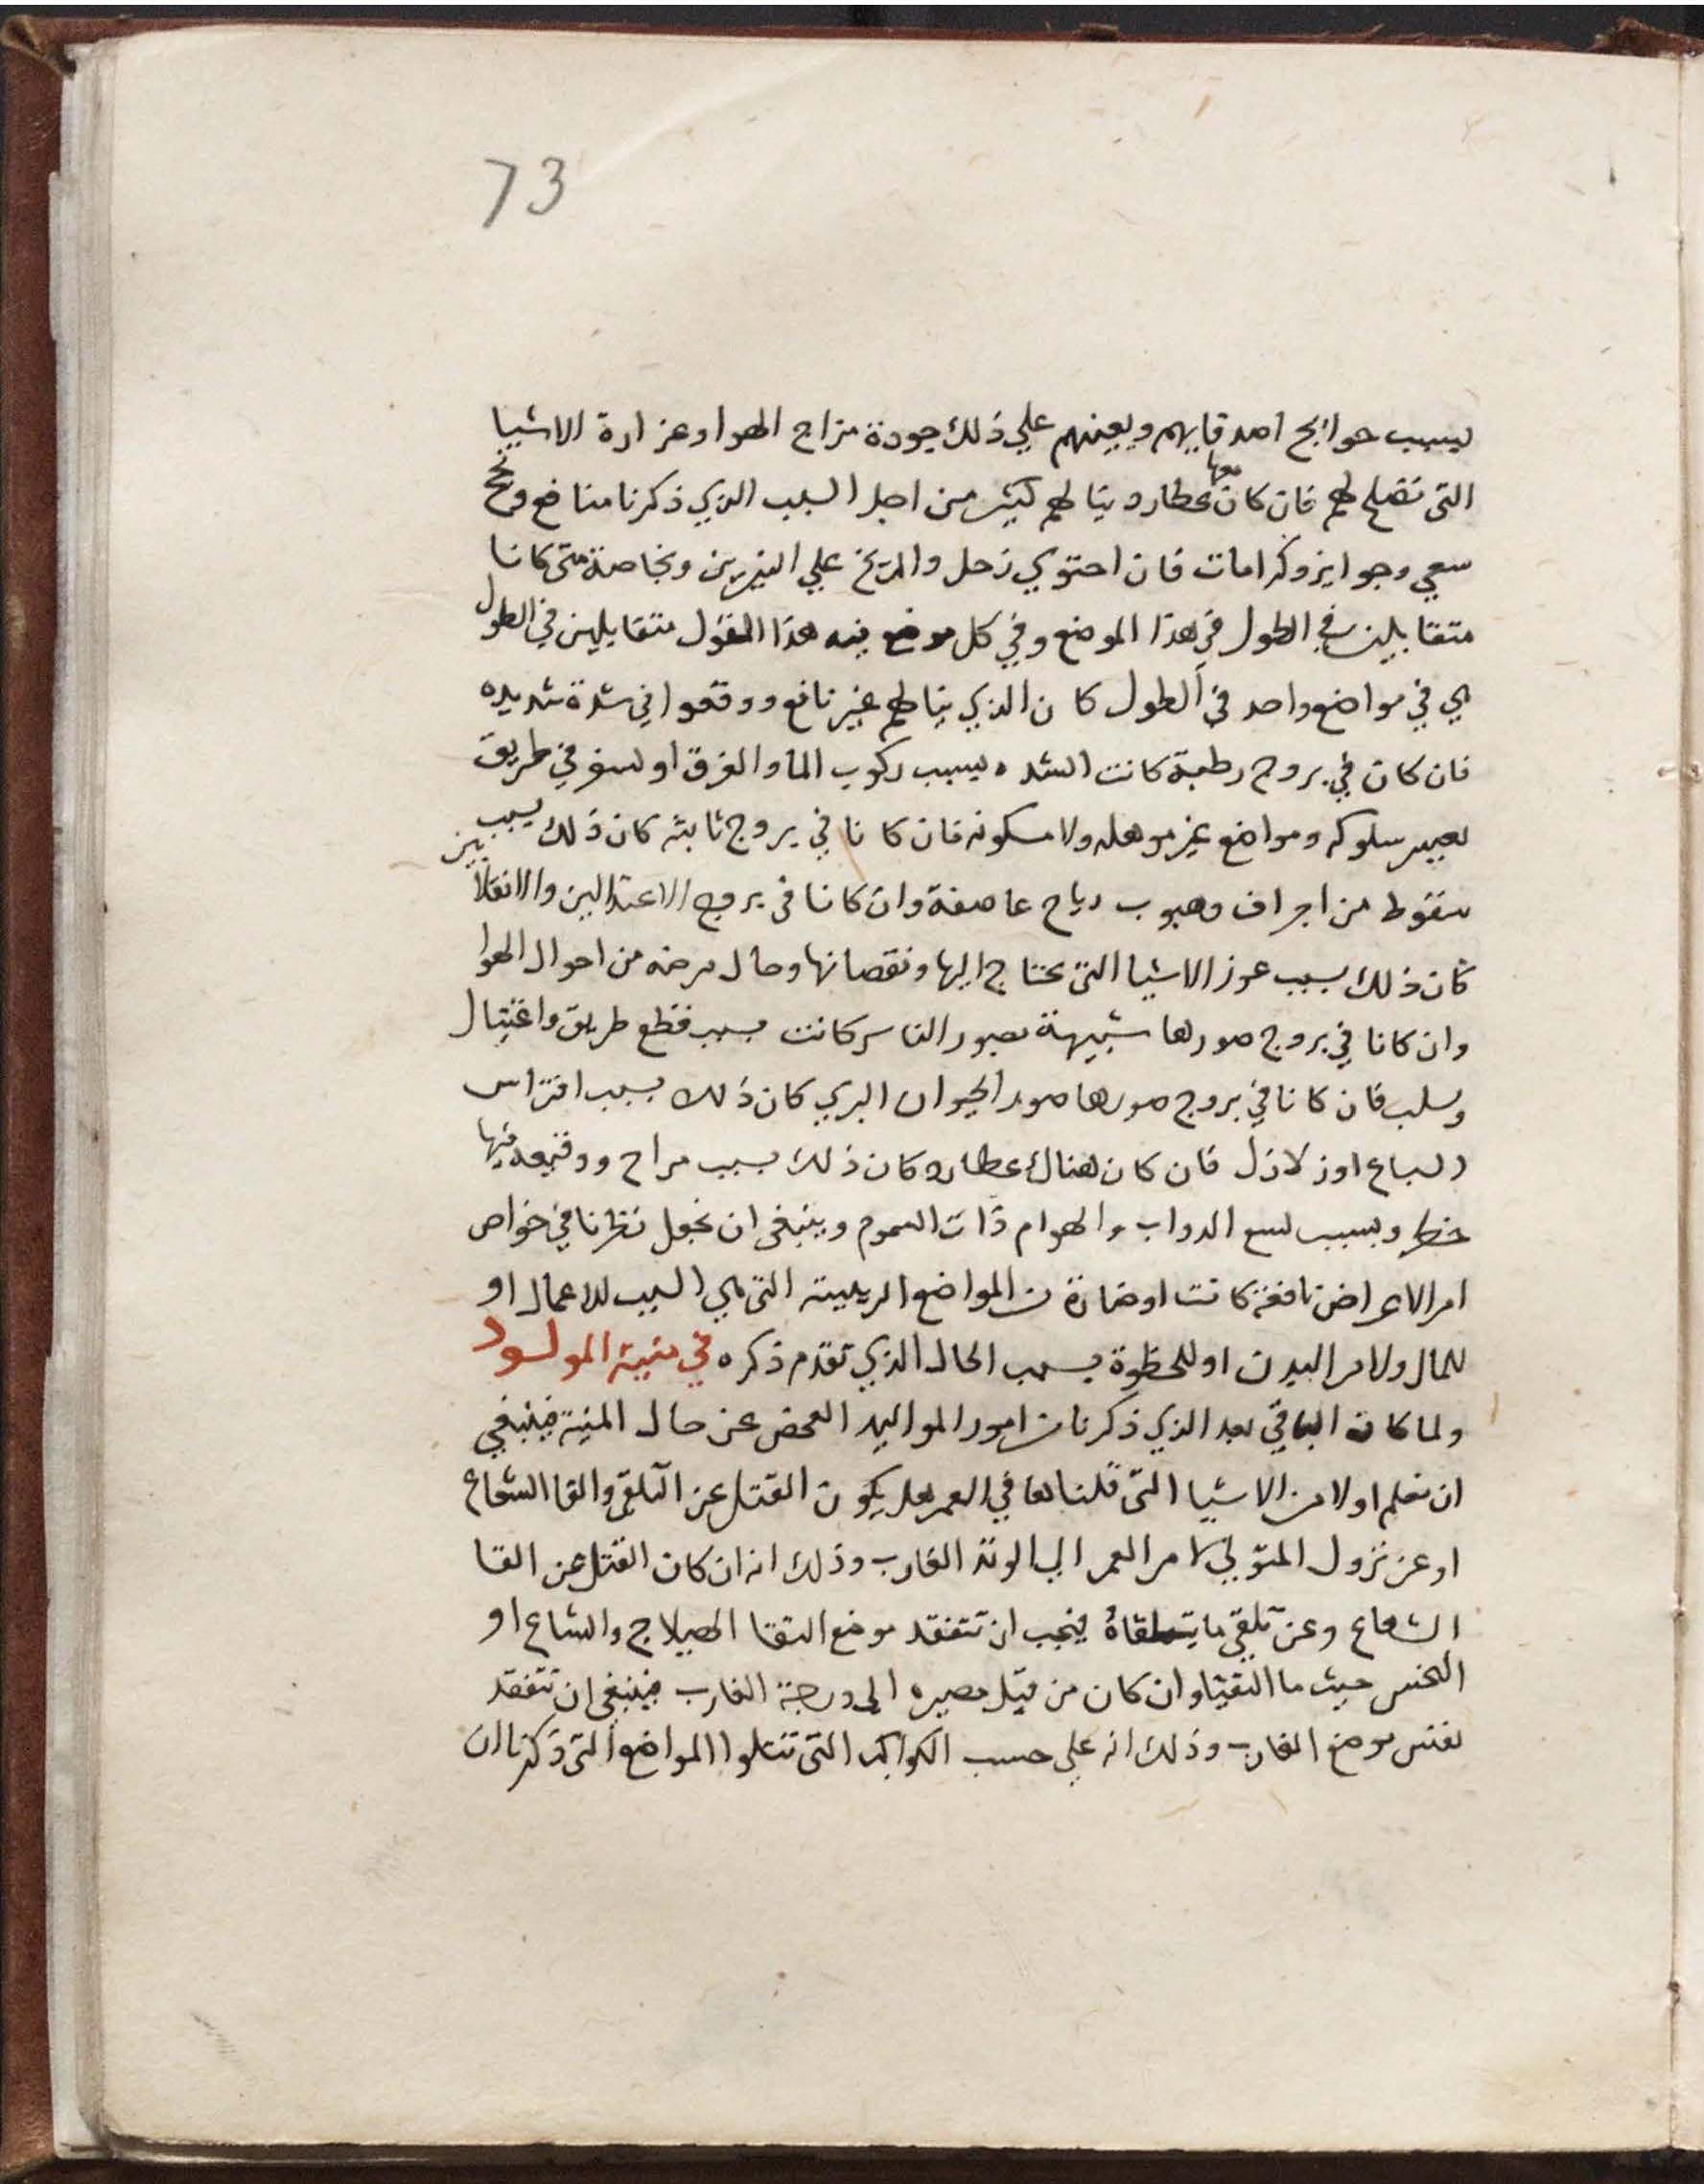 73
بسبب حوائج اصدقايهم ويعينهم علي ذلك جودة مزاج الهوا وغزارة الاشيا
التى تصلح لهم فان كان معها عطارد ينالهم كثير من اجل السبب الذي ذكرنا منافع ونجح
سعي وجوايز وكرامات فان احتوي زحل والمريخ علي النيرين وبخاصة متى كانا
متقابلين في الطول في هذا الموضع وفي كل موضع فيه هذا القول متقابلين في الطول
اي في مواضع واحد في الطول كان الذي ينالهم غير نافع ووقعوا في شدة شديده
فان كان في بروج رطبة كانت الشده بسبب ركوب الما والغرق او لسفر في طريق
يعسر سلوكه ومواضع غير موهله ولا مسكونه فان كانا في بروج ثابته كان ذلك بسبب
سقوط من اجراف وهبوب رياح عاصفة وان كانا في بروج الاعتدالين والانقلابين
كان ذلك بسبب عوز الاشيا التى يحتاج اليها ونقصانها وحال مرضه من احوال الهوا
وان كانا في بروج صورها شبيهة بصور الناس كانت بسبب قطع طريق واغتيال
وسلب فان كانا في بروج صورها صور الحيوان البري كان ذلك بسبب افتراس
السباع او زلازل فان كان هناك عطارد كان ذلك بسبب مراح ووقيعه فيها
خطر وبسبب لسع الدواب والهوام ذات السموم وينبغى ان نجعل نظرنا في خواص
امر الاعراض نافعة كانت او ضارة من المواضع الرييسة التى هي السبب للاعمال او
للمال ولامر البدن او للحظوة بسبب الحال الذي تقدم ذكره في منية المولود
ولما كان الباقي بعد الذي ذكرنا من امور المواليد الفحص عن حال المنية فينبغي
ان نعلم اولا من الاشيا التى قلناها في العمر هل يكون القتل عن التلقي والقا الشعاع
او عن نزول المتولي لامر العمر الي الوتد الغارب وذلك انه ان كان القتل عن القا
الشعاع وعن تلقي ما يتلقاه فيجب ان تتفقد موضع التقا الهيلاج والشعاع او
النحس حيث ما التقيا وان كان من قبل مصيره الى درجة الغارب فينبغى ان نتفقد
نفس موضع الغارب وذلك انه علي حسب الكواكب التى تتلوا المواضع التى ذكرنا ان